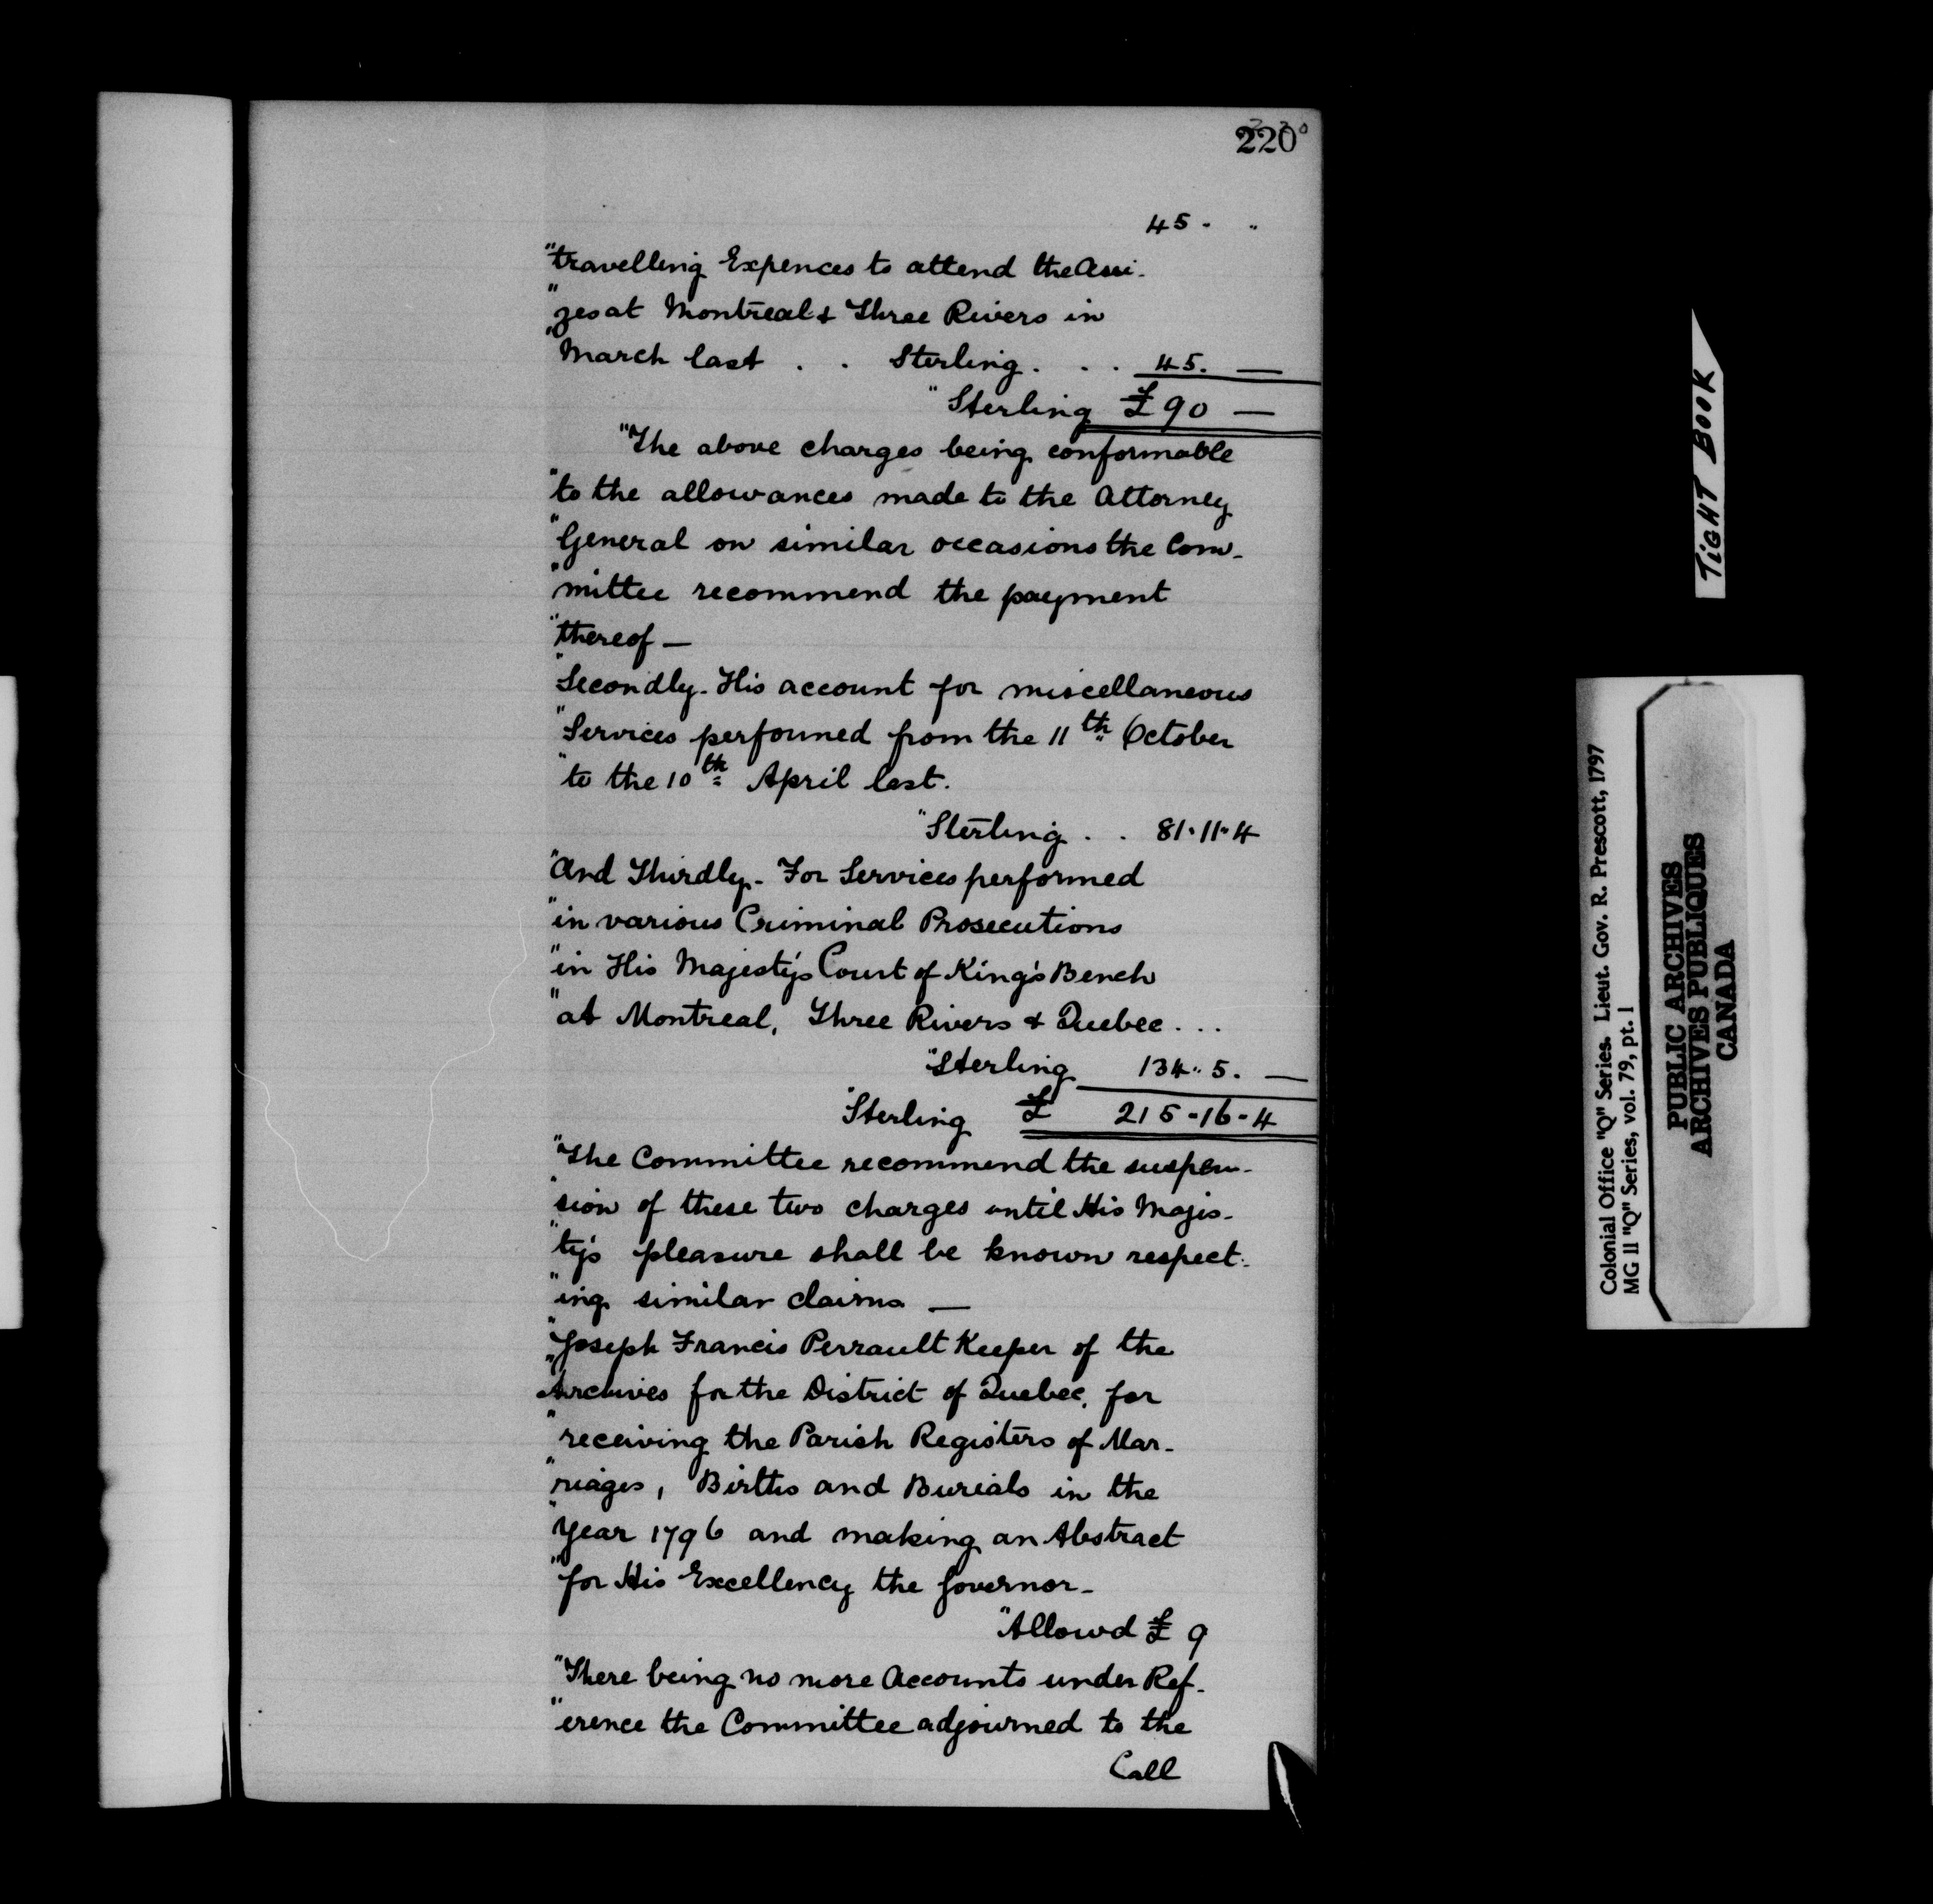 220
45 - "
"travelling Expences to attend the Assi-
"zes at Montreal & Three Rivers in
"March last . . Sterling . . . 45. —
"Sterling £ 90 —
"The above charges being conformable
"to the allowances made to the Attorney
"General on similar occasions the Com-
"mittee recommend the payment
"thereof —
"Secondly - His account for miscellaneous
"Services performed from the 11th October
"to the 10th April last.
"Sterling . . 81.11.4
"And Thirdly - For Services performed
"in various Criminal Prosecutions
"in His Majesty's Court of King's Bench
"at Montreal, Three Rivers & Quebec . . .
"Sterling 134.. 5. —
"Sterling £ 215-16-4
"The Committee recommend the suspen-
"sion of these two charges until His Majes-
"ty's pleasure shall be known respect-
"ing similar claims —
"Joseph Francis Perrault Keeper of the
"Archives for the District of Quebec, for
"receiving the Parish Registers of Mar-
"riages, Births and Burials in the
"Year 1796 and making an Abstract
"for His Excellency the Governor -
"Allowd £ 9
"There being no more Accounts under Ref-
"erence the Committee adjourned to the
Call
TIGHT BOOK
Colonial Office "Q" Series. Lieut. Gov. R. Prescott, 1797
MG 11 "Q" Series, vol. 79, pt. 1
PUBLIC ARCHIVES
ARCHIVES PUBLIQUES
CANADA